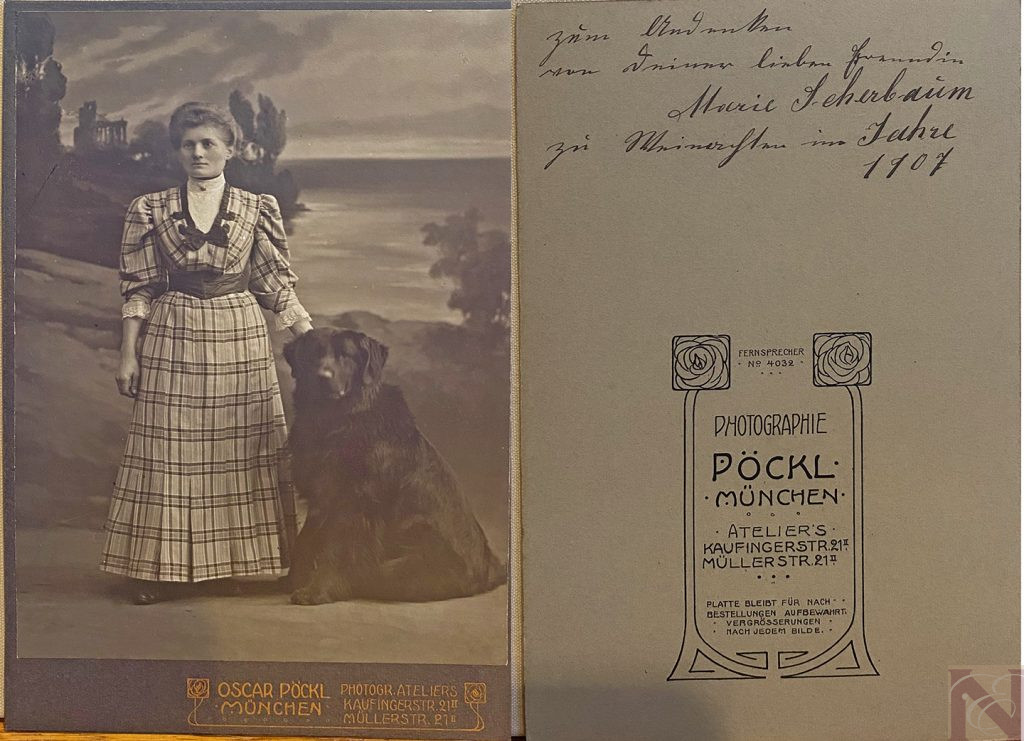 OSCAR PÖCKL
MÜNCHEN
PHOTOGR. ATELIERS
KAUFINGERSTR. 21 II
MÜLLERSTR. 21 II
zum Andenken
von Deiner lieben Freundin
Marie Scherbaum
zu Weinachten im Jahre
1907
FERNSPRECHER
· No 4032 ·
PHOTOGRAPHIE
PÖCKL·
·MÜNCHEN·
· ATELIER'S ·
KAUFINGERSTR. 21 II
MÜLLERSTR. 21 II
PLATTE BLEIBT FÜR NACH-
BESTELLUNGEN AUFBEWAHRT.
· VERGRÖSSERUNGEN ·
NACH JEDEM BILDE.